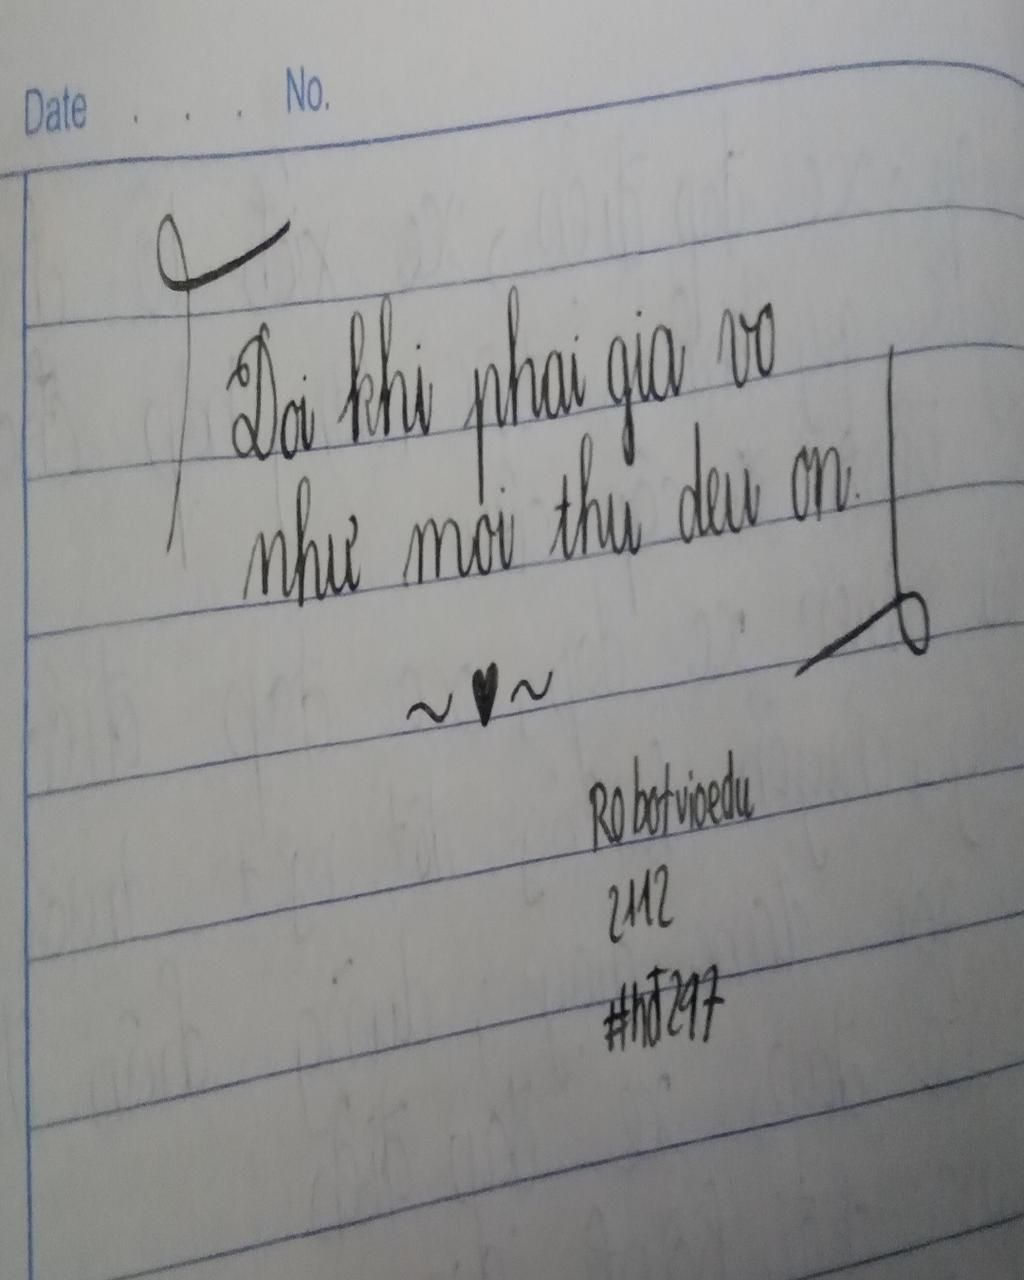 Date . . . No.
Doi khi phai gia vo
như moi thu deu on.
~ ♥ ~
Robotvioedu
2112
#hđ297